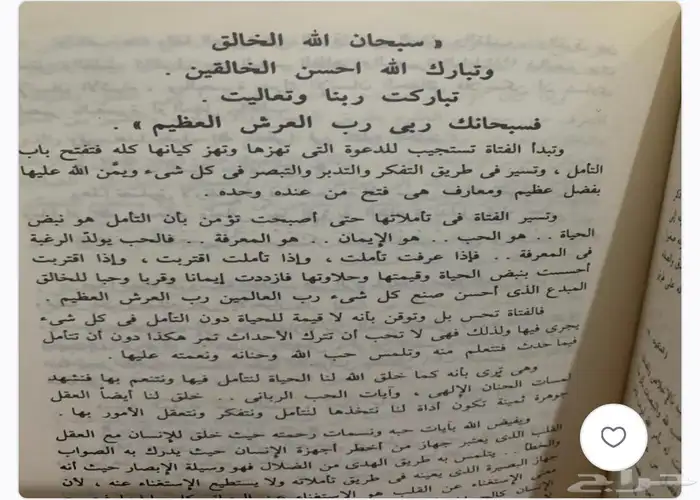 « سبحان الله الخالق
وتبارك الله احسن الخالقين .
تباركت ربنا وتعاليت .
فسبحانك ربى رب العرش العظيم » .
وتبدأ الفتاة تستجيب للدعوة التى تهزها وتهز كيانها كله فتفتح باب
التأمل ، وتسير فى طريق التفكر والتدبر والتبصر فى كل شىء ويمَّن الله عليها
بفضل عظيم ومعارف هى فتح من عنده وحده .
وتسير الفتاة فى تأملاتها حتى أصبحت تؤمن بأن التأمل هو نبض
الحياة .. هو الحب .. هو الإيمان .. هو المعرفة .. فالحب يولدّ الرغبة
فى المعرفة .. فإذا عرفت تأملت ، وإذا تأملت اقتربت ، وإذا اقتربت
أحست بنبض الحياة وقيمتها وحلاوتها فازددت إيمانا وقربا وحبا للخالق
المبدع الذى أحسن صنع كل شىء رب العالمين رب العرش العظيم .
فالفتاة تحس بل وتوقن بأنه لا قيمة للحياة دون التأمل فى كل شىء
يجرى فيها ولذلك فهى لا تحب أن تترك الأحداث تمر هكذا دون أن تتأمل
فيما حدث فتتعلم منه وتلمس حب الله وحنانه ونعمته عليها .
وهى ترى بأنه كما خلق الله لنا الحياة لنتأمل فيها ونتنعم بها فتشهد
لمسات الحنان الإلهى ، وآيات الحب الربانى .. خلق لنا أيضاً العقل
جوهرة ثمينة تكون أداة لنا نتخذها لنتأمل ونتفكر ونتعقل الأمور بها .
ويفيض الله بآيات حبه ونسمات رحمته حيث خلق للإنسان مع العقل
القلب الذى يعتبر جهاز من أخطر أجهزة الإنسان حيث يدرك به الصواب
والخطأ .. يتلمس به طريق الهدى من الضلال فهو وسيلة الإبصار حيث أنه
جهاز البصيرة الذى يعينه فى طريق تأملاته ولا يستطيع الإستغناء عنه ، لأن
معنى الإستغناء عن القلب هو الاستغناء عن
حراج